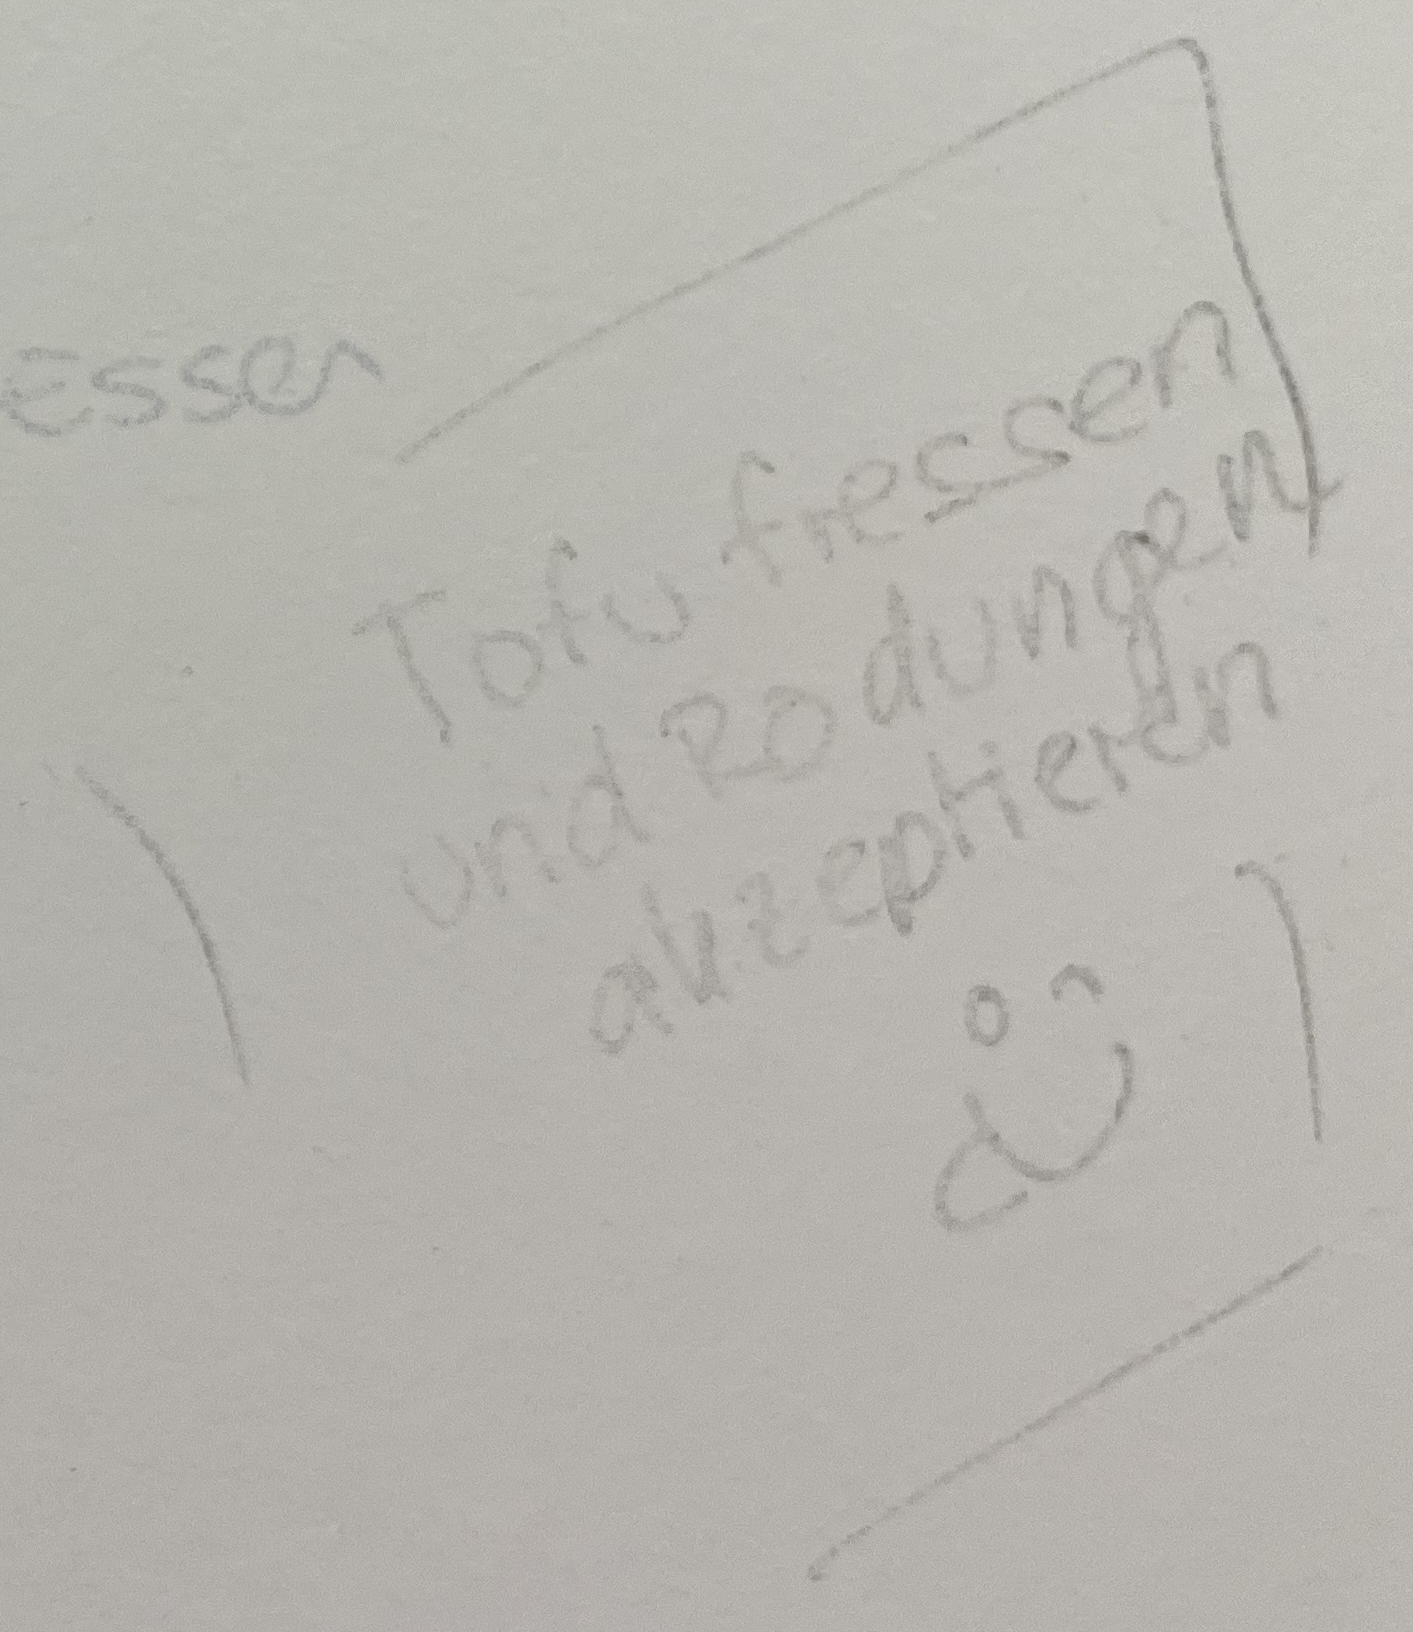 Esser
Tofu fressen
und Rodungen
akzeptieren